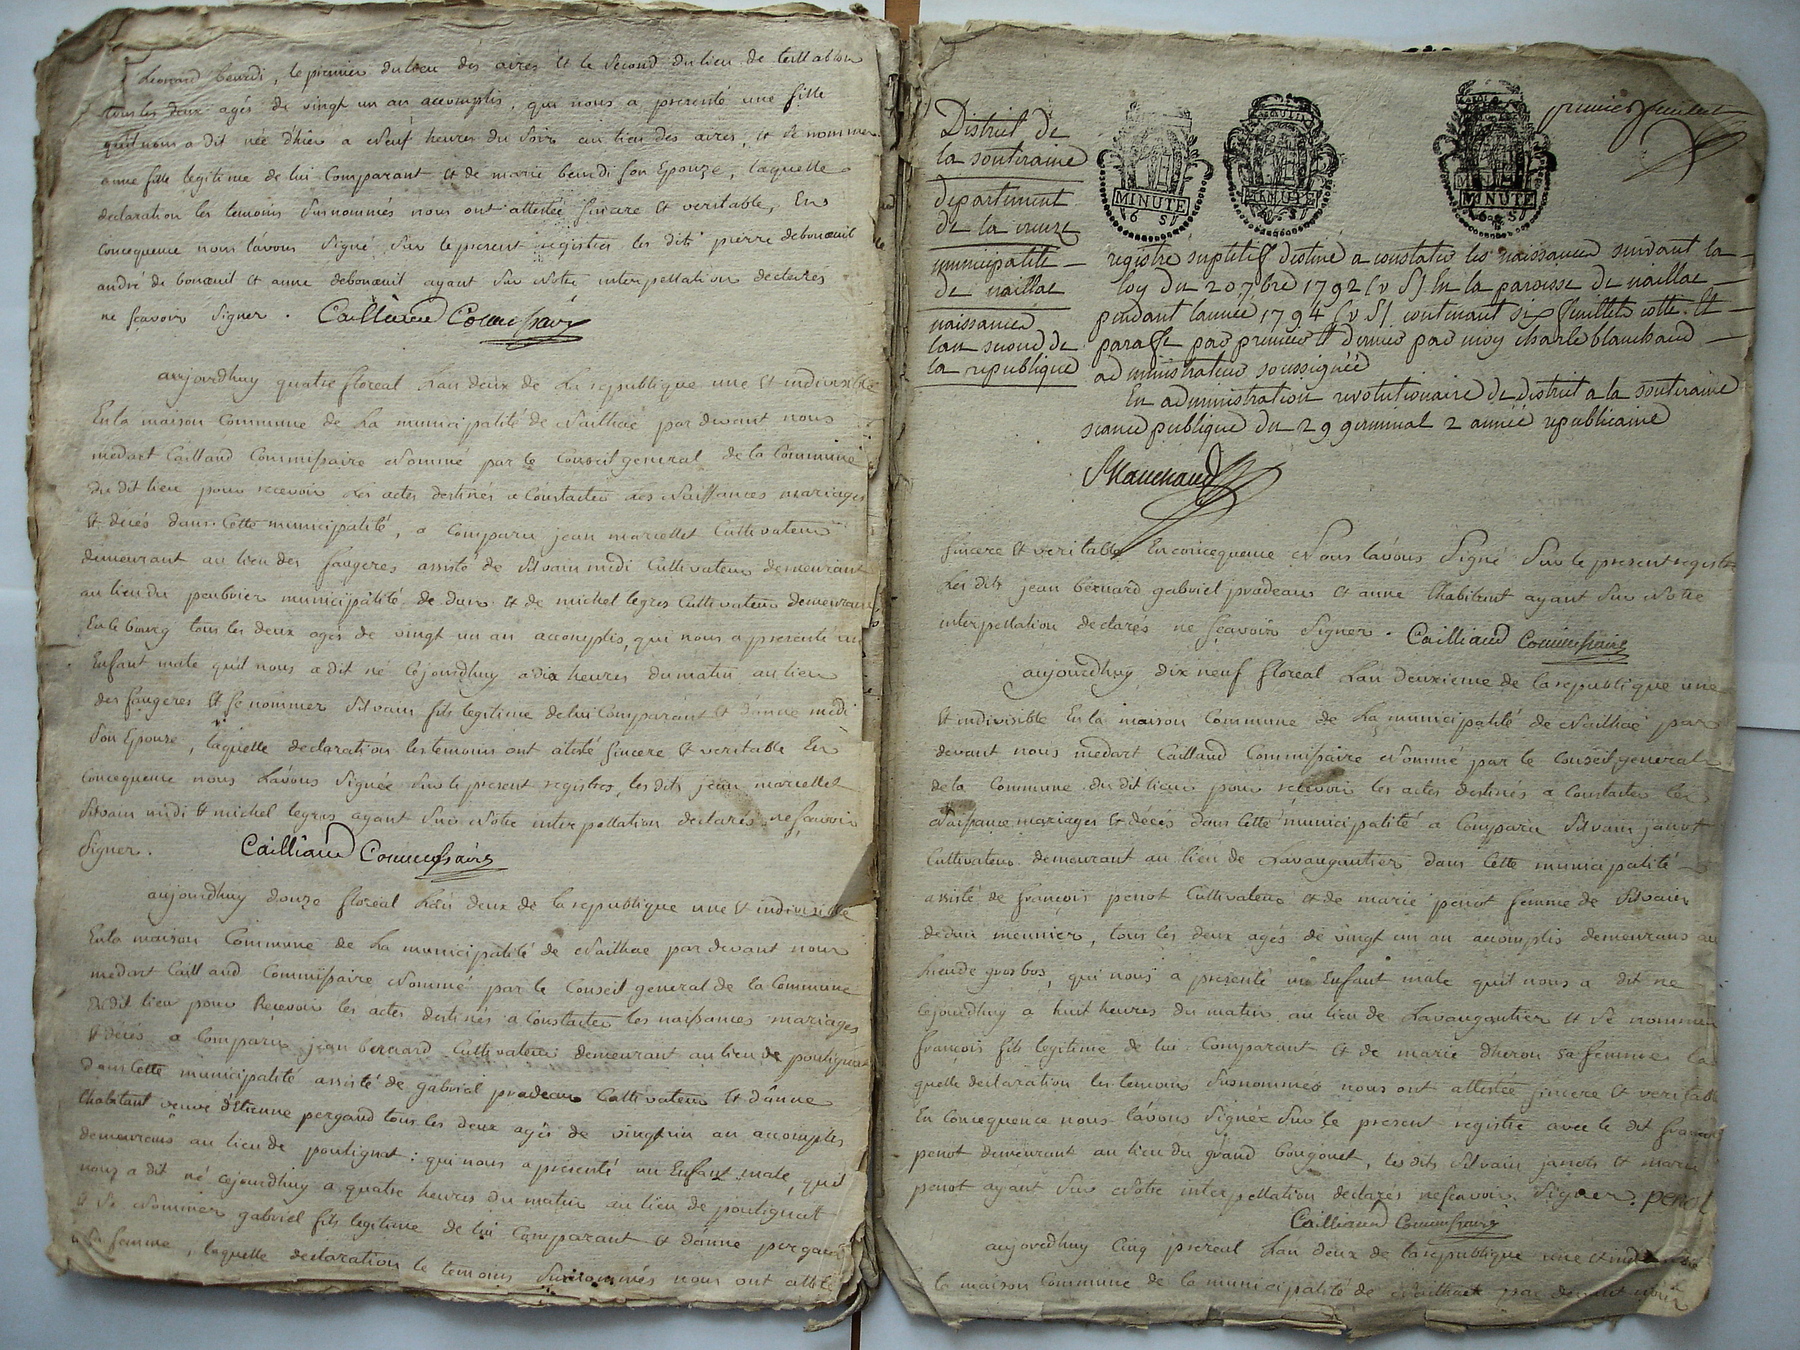 Leonard beucdi, le premier du lieu des aires et le second du lieu de
tous les deux agés de vingt un an accomplis, qui nous a presenté une fille
quil nous a dit née d'hier a neuf heures du soir au lieu des aires, et se nommer
anne fille legitime de lui Comparant et de marie son Epouze, laquelle
declaration les temoins susnommés nous ont attestée sincere et veritable, En
Concequence nous l'avons signé sur le present registre les dits pierre deboueuil
andré de boueuil et anne deboueuil ayant sur notre interpellation declarés
ne sçavoir signer. Cailliaud Commissaire
aujourdhuy quatre floreal Lan deux de La republique une et indivisible
En la maison Commune de La municipalité de Naillac par devant nous
medart Cailland Commissaire nommé par le Conseil general de la Commune
du dit lieu pour recevoir Les actes destinés a Constacter les Naissances mariages
et décés dans Cette municipalité, a Comparu jean marcellet Cultivateur
demeurant au lieu des faugeres assisté de silvain midi Cultivateur demeurant
au lieu du municipalité de dun et de michel legros Cultivateur demeurant
En le bourg tous les deux agés de vingt un an accomplis, qui nous a presenté un
Enfant male quil nous a dit né Cejourdhuy a dix heures du matin au lieu
des faugeres et se nommer silvain fils legitime de lui Comparant et d'anne midi
son Epouze, laquelle declaration les temoins ont atesté sincere et veritable En
Concequence nous L'avons signée sur le present registres, les dits jean marcellet
silvain midi et michel legros ayant sur notre interpellation declarés ne sçavoir
signer. Cailliaud Commissaire
aujourdhuy douze floreal Lan deux de la republique une et indivisible
En la maison Commune de La municipalité de Naillac par devant nous
medart Cailland Commissaire nommé par le Conseil general de la Commune
du dit lieu pour Recevoir les actes destinés a Constacter les naissances mariages
et décés a Comparu jean bernard Cultivateur demeurant au lieu de poulignat
dans Cette municipalité assisté de gabriel pradeau Cultivateur et d'anne
Chabitant veuve d'Etienne pergaud tous les deux agés de vingt un an accomplis
demeurans au lieu de poulignat : qui nous a presenté un Enfant male, quil
nous a dit né cejourdhuy a quatre heures du matin au lieu de poulignat
et se nommer gabriel fils legitime de lui Comparant et d'anne pergaud
sa femme, laquelle declaration le temoins susnommés nous ont attesté
premier feuillet
District de
la souteraine
departement
de la creuze
municipalité
de naillac
naissances
lan second de
la republique
MINUTE
6 S
MINUTE
6 S
MINUTE
6 S
registre supletif destiné a constater les naissances suivant la
loy du 20 7bre 1792 (v S) En la paroisse de naillac
pendant lannée 1794 (v S) contenant six feuillets cotté et
paraffé par premier et dernier par moy charle blanchard
administrateur soussignée
En administration revolutionaire de district a la souteraine
seance publique du 29 germinal 2 année republicaine
Blanchard
sincere et veritable En concequence nous l'avons signé sur le present registre
Les dits jean bernard gabriel pradeau et anne Chabitant ayant sur notre
interpellation declarés ne sçavoir signer. Cailliaud Commissaire
aujourdhuy dix neuf floreal Lan deuxieme de la republique une
et indivisible En la maison Commune de La municipalité de Naillac par
devant nous medart Cailland Commissaire nommé par le Conseil general
de la Commune du dit lieu pour recevoir les actes destinés a Constacter les
Naissance mariages et décés dans Cette municipalité a Comparu silvain janot
Cultivateur demeurant au lieu de Lavaugautier dans Cette municipalité
assisté de françois penot Cultivateur et de marie penot femme de silvain
meunier, tous les deux agés de vingt un an accomplis demeurans au
lieu de grosbos, qui nous a presenté un Enfant male quil nous a dit ne
Cejourdhuy a huit heures du matin au lieu de Lavaugautier et se nommer
françois fils legitime de lui Comparant et de marie dheron sa femme la
quelle declaration les temoins susnommés nous ont attestée sincere et veritable
En concequence nous l'avons signée sur le present registre avec le dit françois
penot demeurant au lieu du grand bougouet, les dits silvain janot et marie
penot ayant sur notre interpellation declarés ne scavoir signer. penot
Cailliaud Commissaire
aujourdhuy Cinq prereal Lan deux de la republique une et indivisible
la maison Commune de la municipalité de Naillac par devant nous